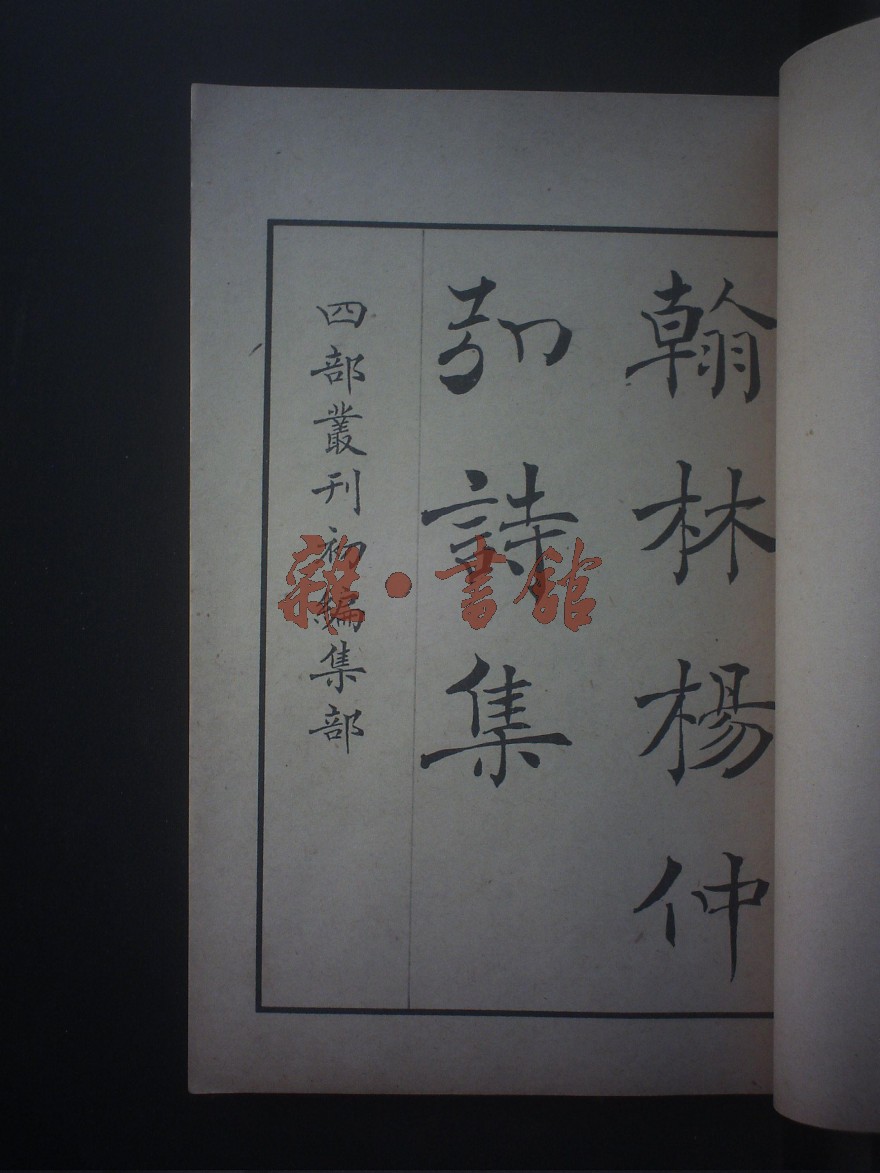 翰林楊仲
弘詩集
四部叢刊初編集部
雜·書館